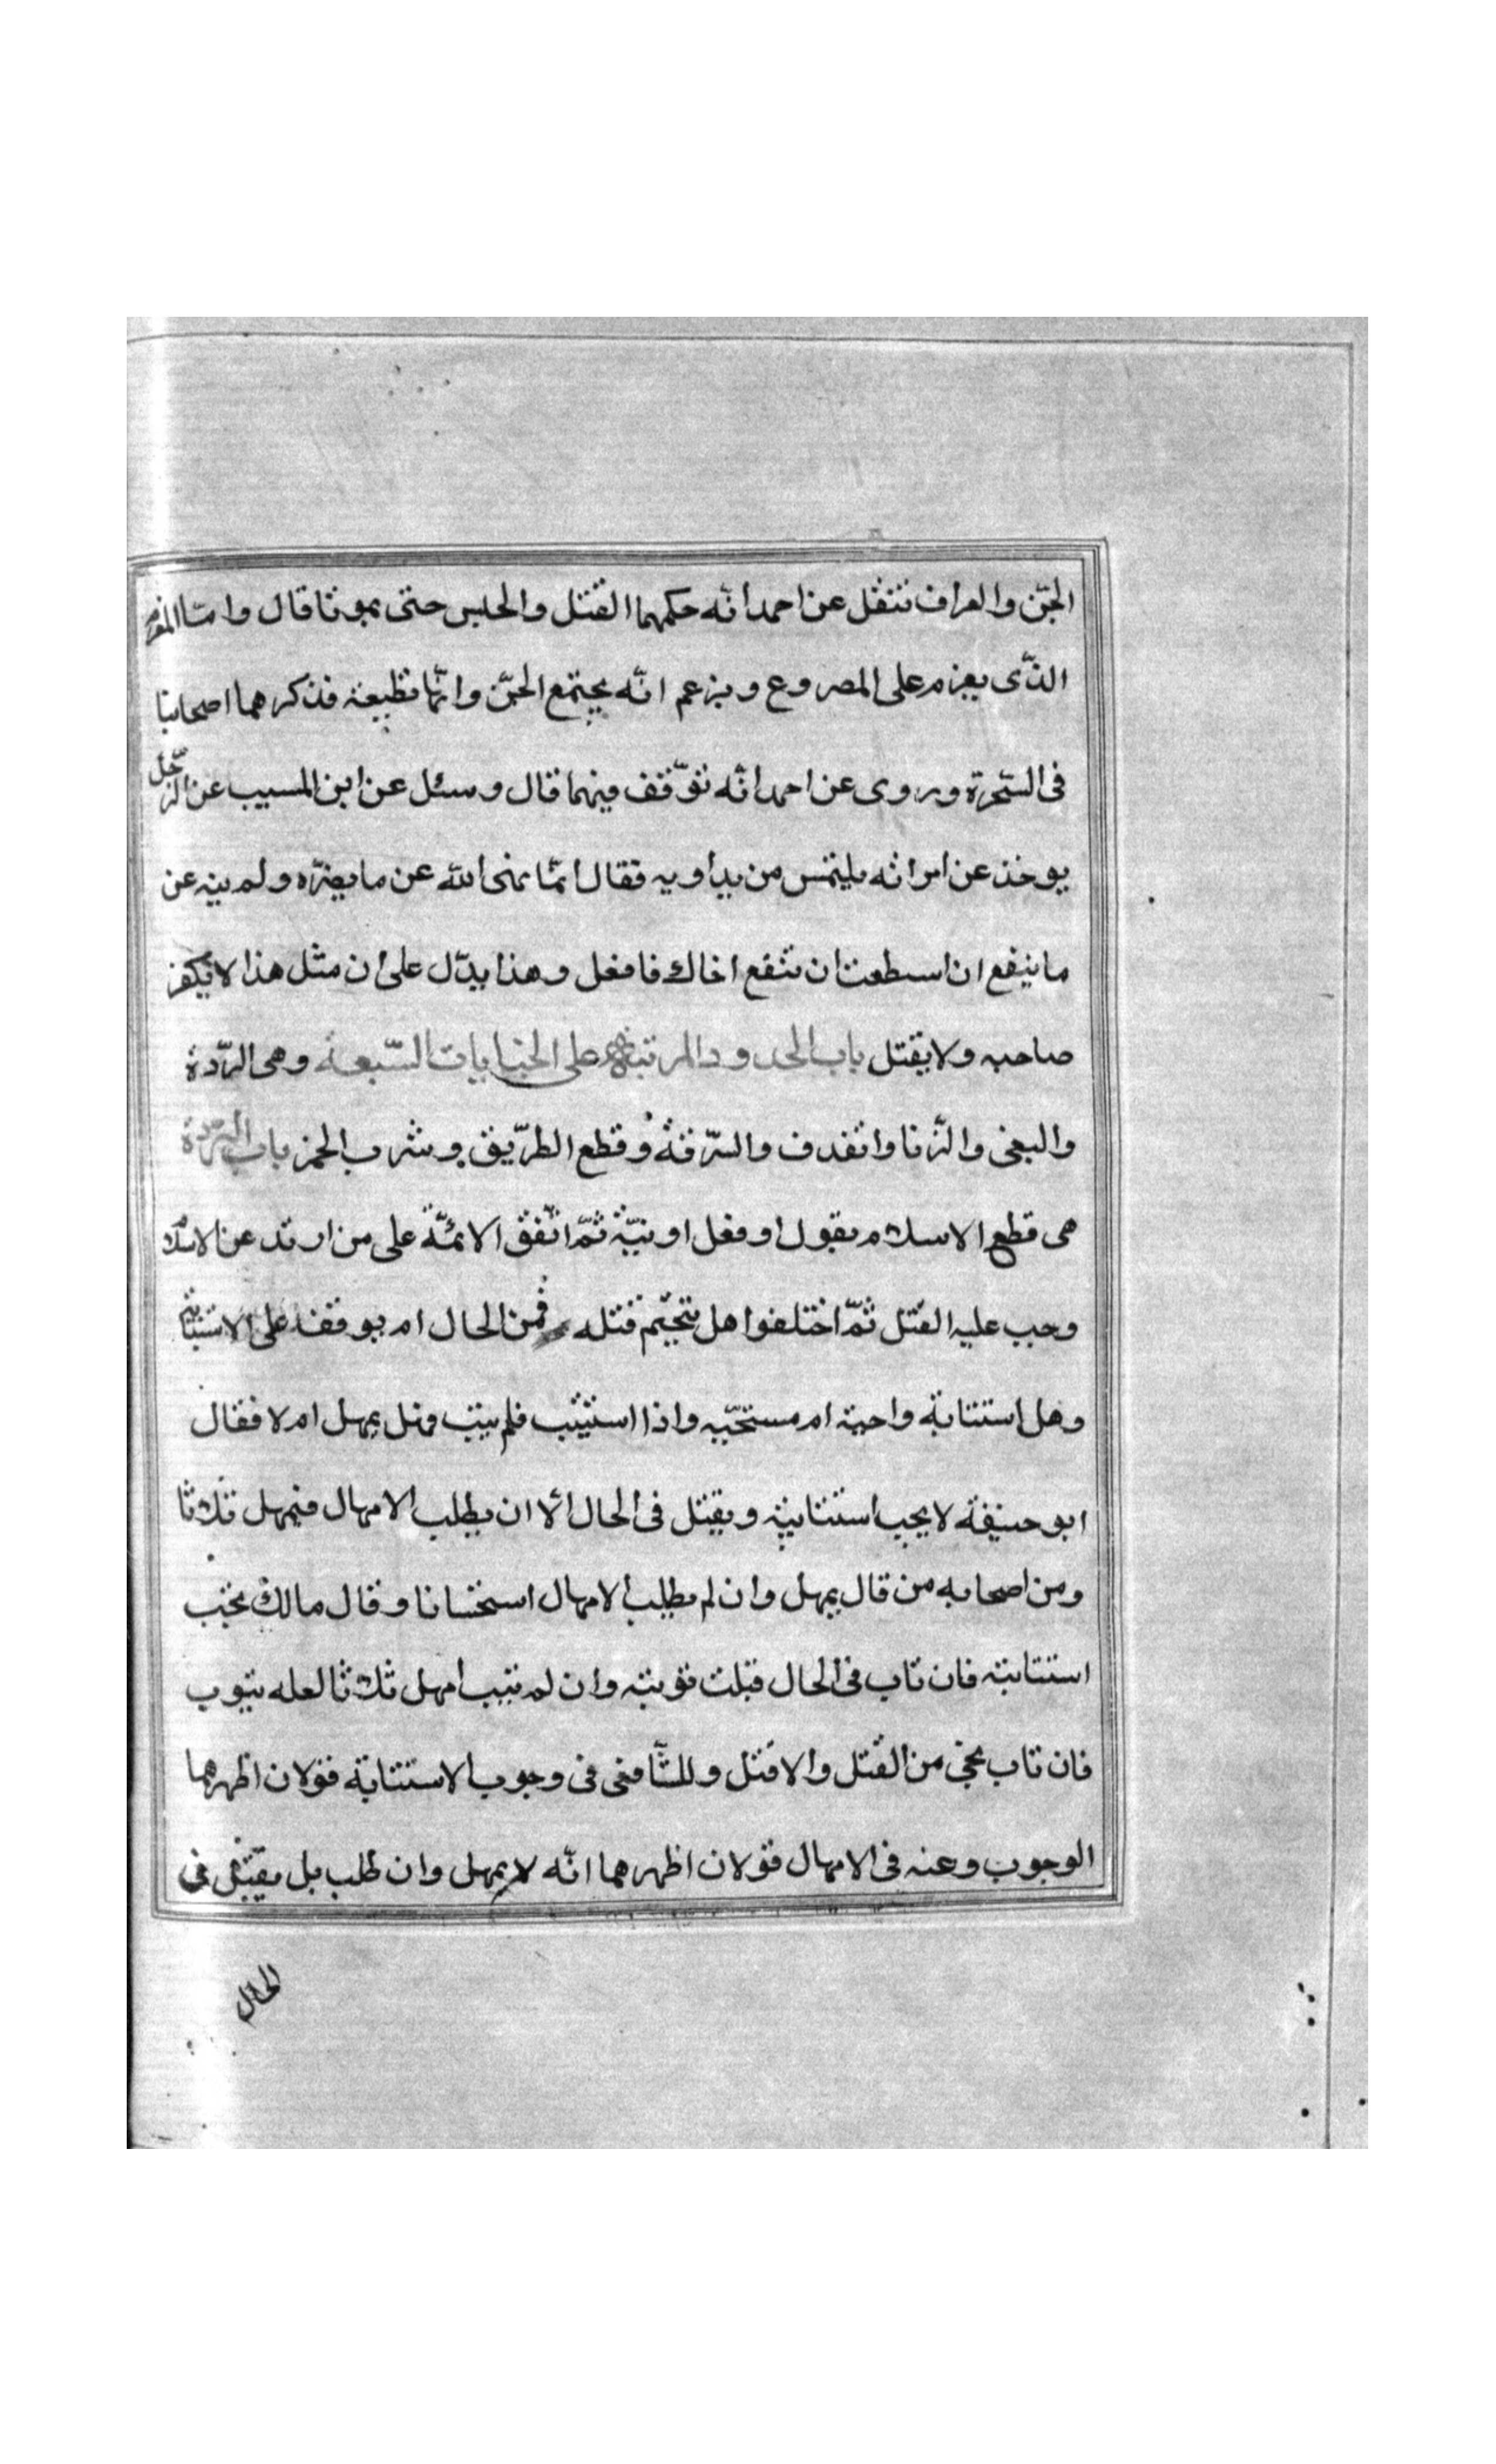 الجنّ والعراف تنقل عن احمد انّه حكمهما القتل والحلبس حتى يموتا قال وامّا المغرم
الذّى يعزم على المصروع ويزعم انّه يجتمع الجنّ وانّها تطيعه فذكرهما اصحابنا
فى السّحرة وروى عن احمد انّه توّقف فيهما قال وسئل عن ابن المسيب عن الرّجل
يوخذ عن امراته يلتمس من يداويه فقال انمّا نهى الله عن ما يضرّه ولم ينه عن
ما ينفع ان اسطعت ان تنفع اخاك فافعل وهذا يدّل على ان مثل هذا لا يكفر
صاحبه ولا يقتل باب الحدود المرتبة على الجنايات السّبعة وهى الرّدة
والبغى والزّنا واتقذف والسّرقة وقطع الطرّيق وشرب الخمر باب الرّدة
هى قطع الاسلام بقول او فعل او نيّة ثمّ اتّفق الائمّة على من ارتد عن الاسلام
وجب عليه القتل ثمّ اختلفوا هل يتحتّم قتله فمن الحال ام يوقف على الاستتابة
وهل استتابة واجبة ام مستحبّه واذا استتيب فلم يتب وهل يمهل ام لا فقال
ابو حنيفة لا يجب استتابته ويقتل فى الحال الّا ان يطلب الامهال فيمهل ثلاثا
ومن اصحابه من قال يمهل وان لم يطلب الامهال استحسانا وقال مالك يجب
استتابته فان تاب فى الحال قبلت توبته وان لم يتب امهل ثلاثا لعله يتوب
فان تاب نجى من القتل والا قتل وللشّافعى فى وجوب الاستتابة قولان اظهرهما
الوجوب وعنه فى الامهال قولان اظهرهما انّه لا يمهل وان طلب بل يقتل فى
الحال